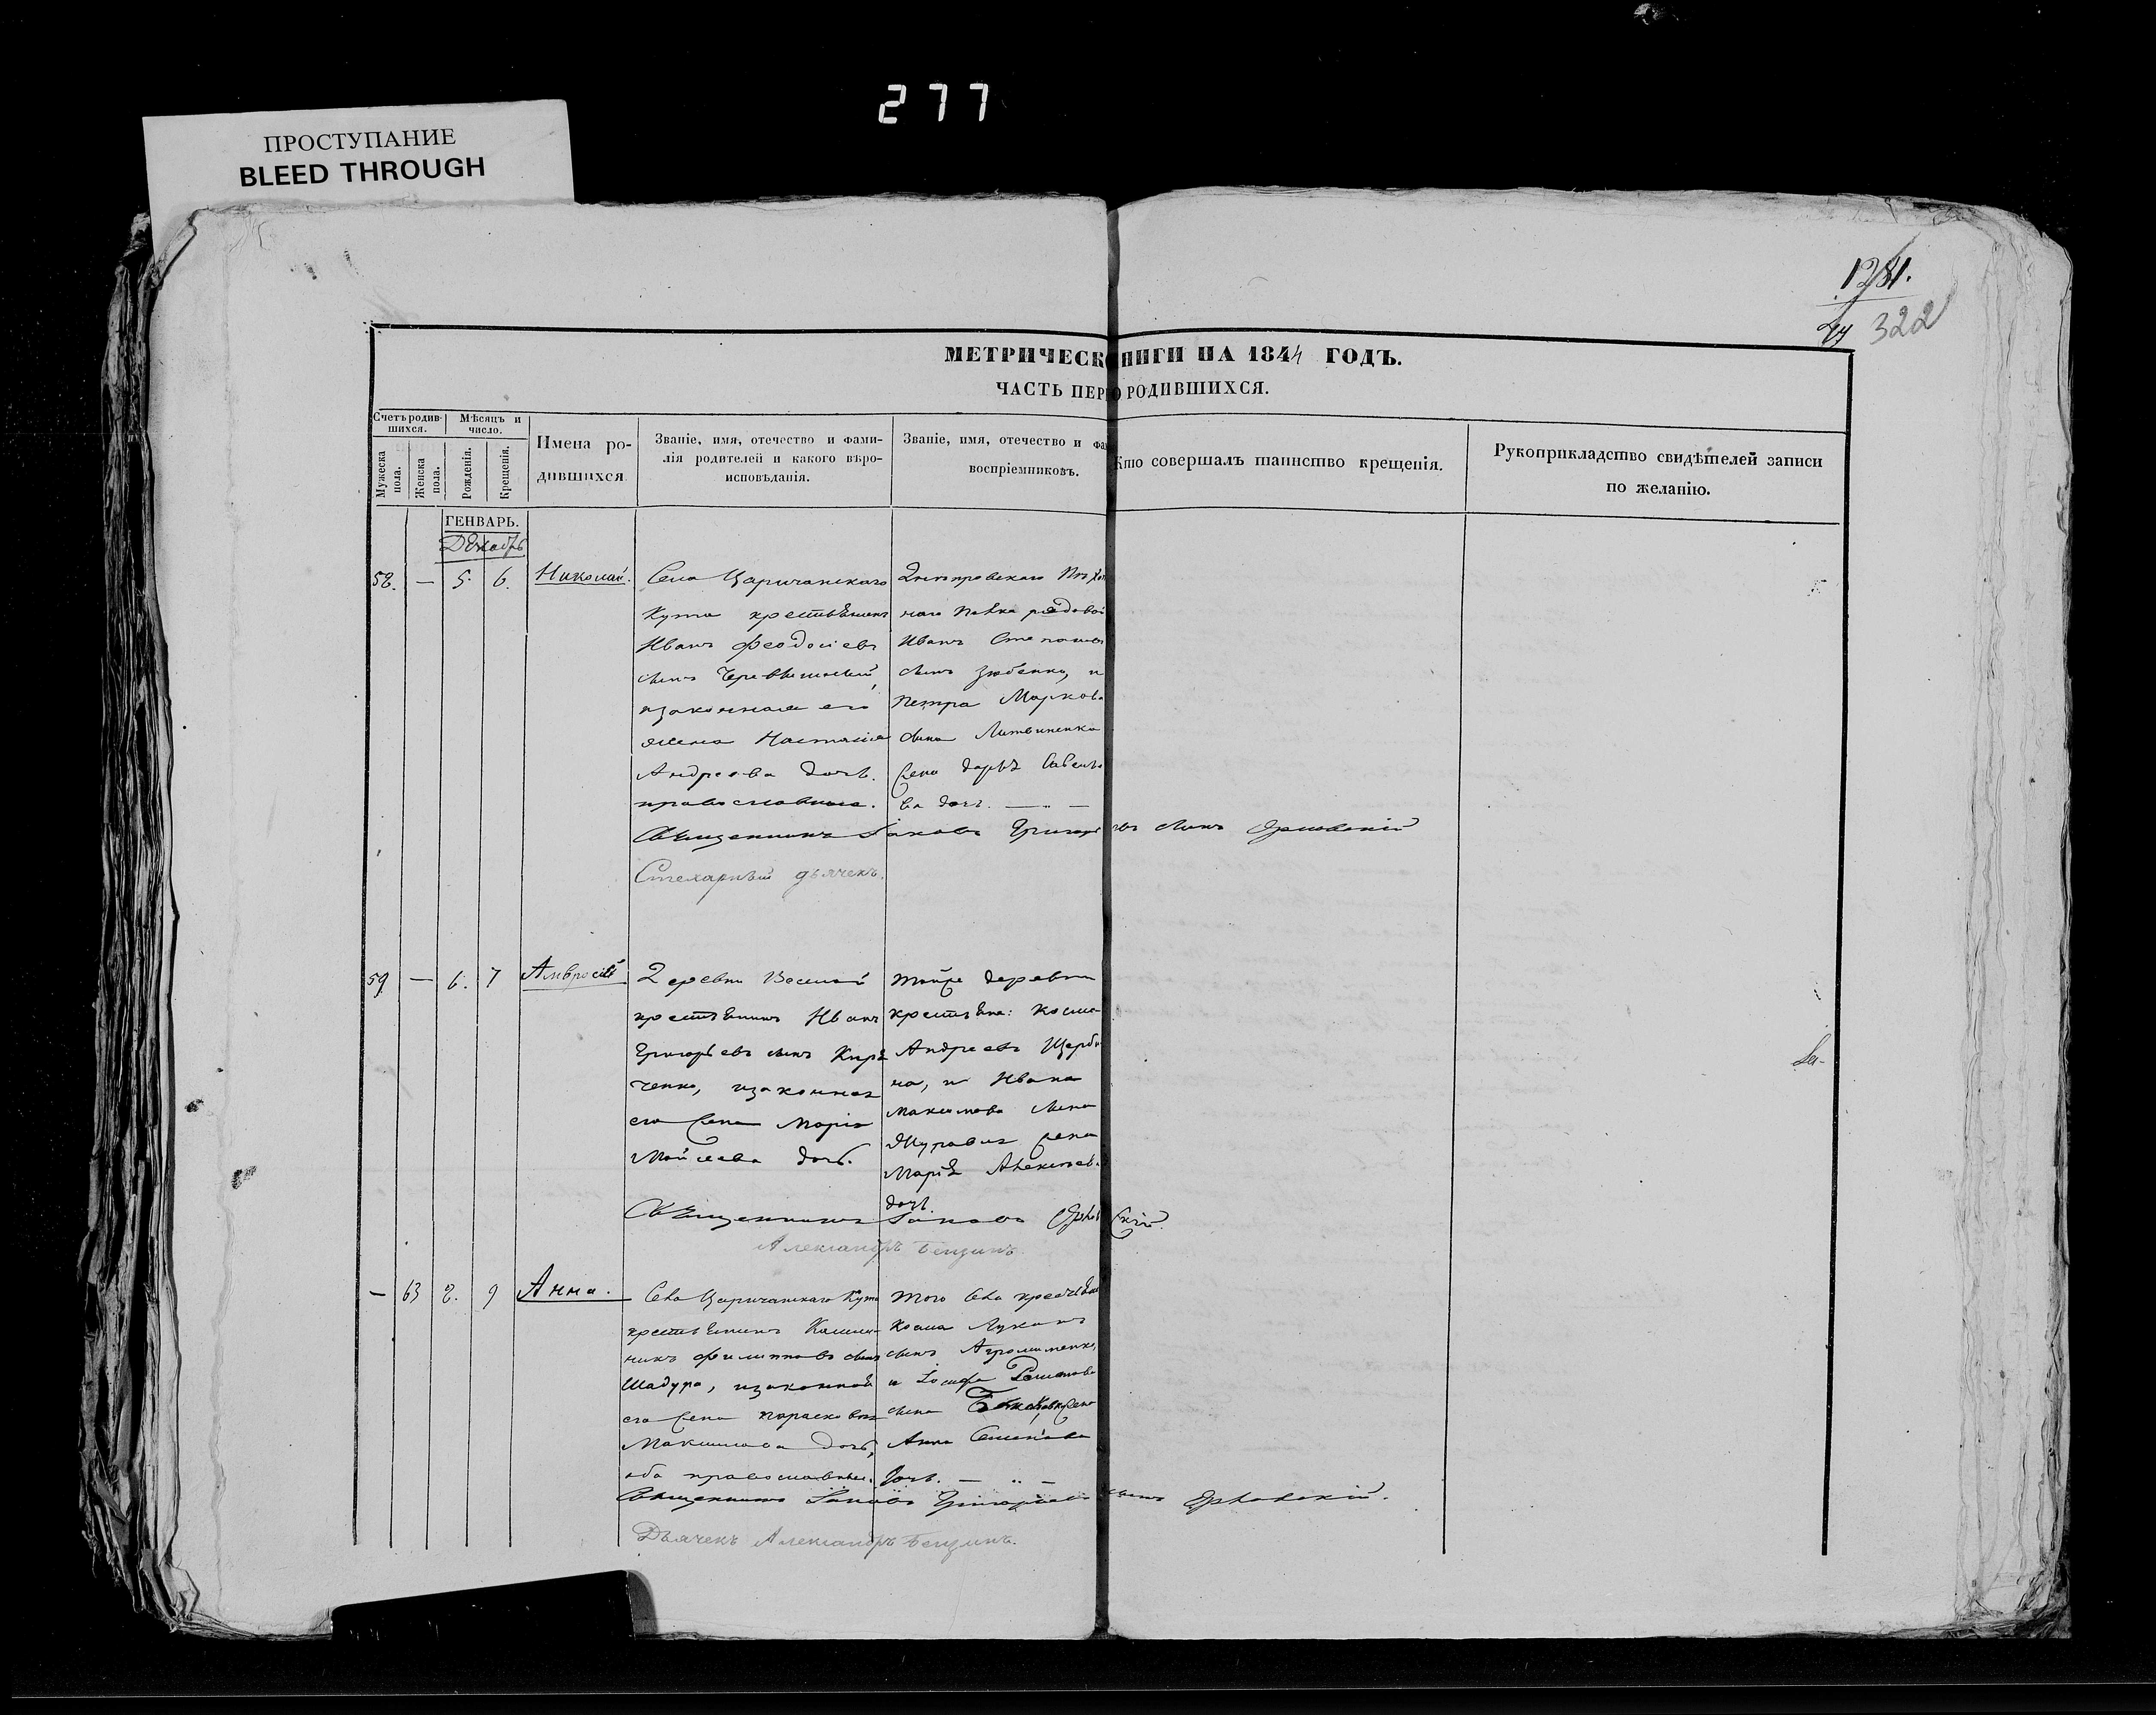 277
ПРОСТУПАНИЕ
BLEED THROUGH
1281.
322
МЕТРИЧЕСК НИГИ НА 1844 ГОДЪ.
ЧАСТЬ ПЕР О РОДИВШИХСЯ.
Счетъ родив-
шихся.
Мѣсяцъ и
число.
Мужеска
пола.
Женска
пола.
Рожденія.
Крещенія.
Имена ро-
дившихся
Званіе, имя, отечество и фами-
лія родителей и какого вѣро-
исповѣданія.
Званіе, имя, отечество и фа
воспріемниковъ.
Кто совершалъ таинство крещенія.
Рукоприкладство свидѣтелей записи
по желанію.
ГЕНВАРЬ.
Декабрь
58. — 5. 6. Николай.
Села Царичанскаго
Кута крестьянинъ
Иванъ Феодосіевъ
сынъ
изаконная его
жена Настасія
Андреева дочь.
православные.
Днепровскаго Пѣхот
наго Полка рядовой
Иванъ Степановъ
сынъ Зюбенко, и
Петра Маркова
сына Литвиненка
жена Дарья Савельѣ
ва дочь. —
Священникъ Іаковъ Григорьевъ сынъ Орловскій
Стихарный дьячекъ.
59 — 6. 7 Амвросій
Деревни Веселой
крестьянинъ Иванъ
Григорьевъ сынъ Кири
ченко, изаконная
его жена Марія
Мойсеева дочь.
тойже деревни
крестьяне: Косма
Андреевъ Щерби
на, и Ивана
Максимова сына
Журавля жена
Марія Алексѣев.
дочь
Священникъ Іаковъ Орловскій.
Александръ Бенцинъ.
— 63 8. 9 Анна.
Села Царичанскаго Кута
крестьянинъ Калин-
никъ Филипповъ сынъ
Шадура, изаконная
его жена Параскова
Максимова дочь,
оба православные.
того села крестьяне
Косма Лукинъ
сынъ
и Іосифа
сына жена
Анна Семенова
дочь. —
Священникъ Іаковъ Григорьевъ сынъ Орловскій.
Дьячекъ Александръ Бенцинъ.